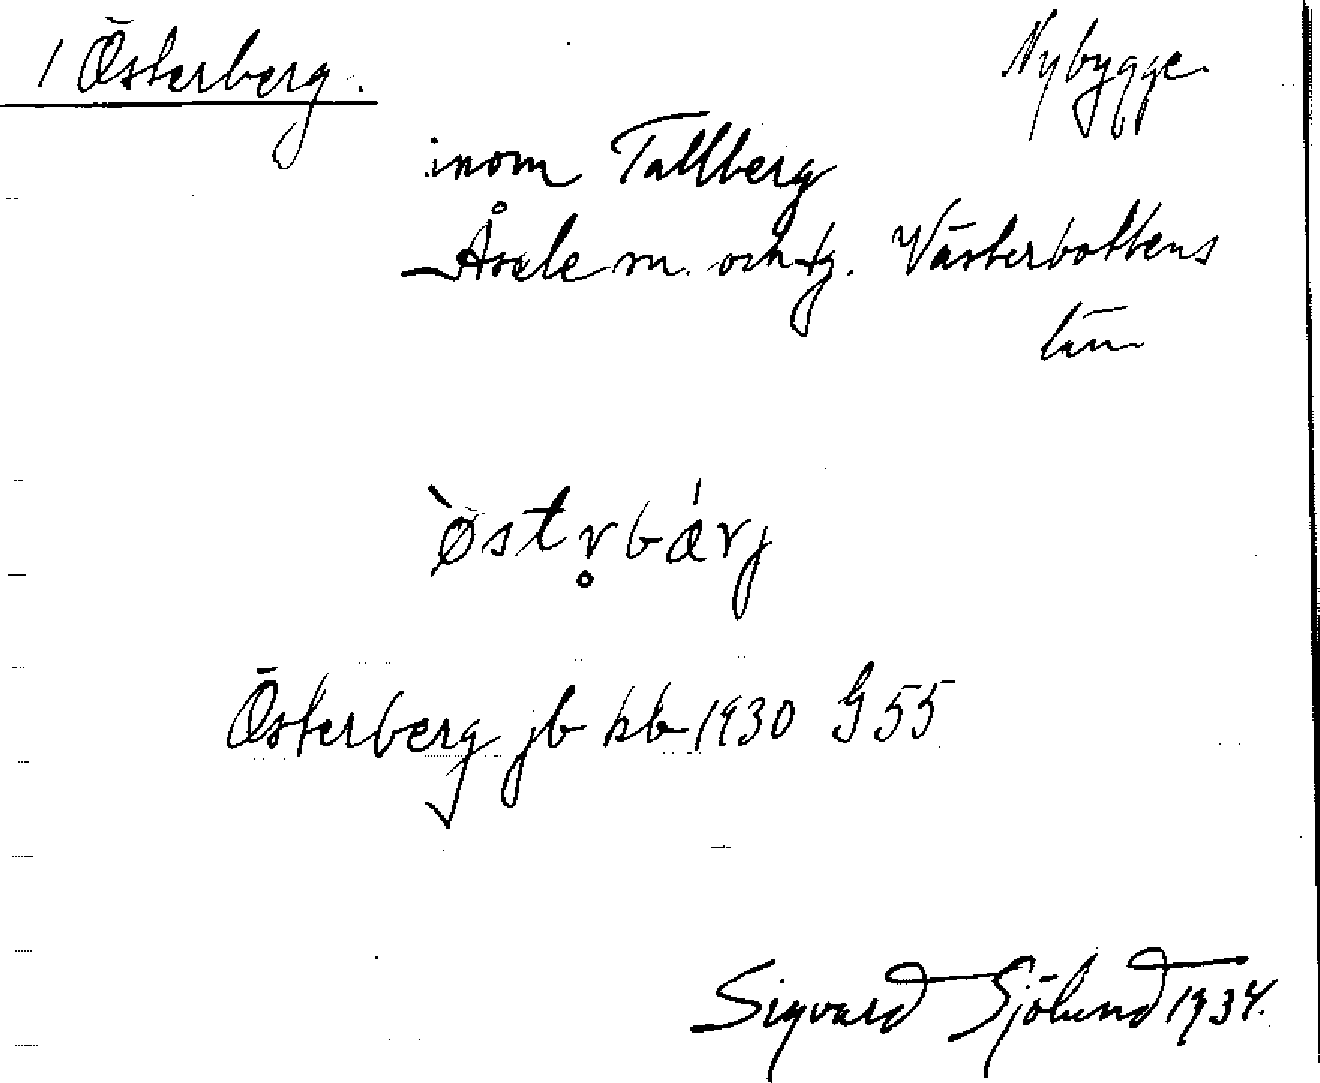 1 Österberg. Nybygge
inom Tallberg
Åsele sn. och tg. Västerbottens
län
̀øst r̥bǽrj
Österberg jb kb 1930 G 55
Sigvard Sjölund 1934.